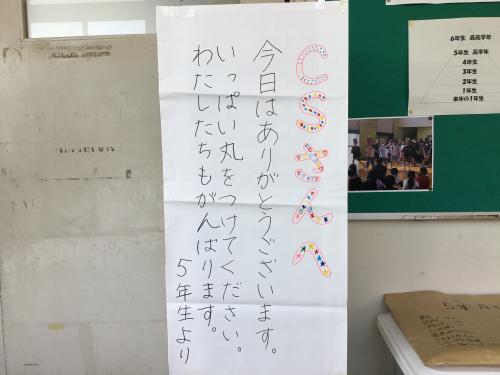 CSさんへ
今日はありがとうございます。
いっぱい丸をつけてください。
わたしたちもがんばります。
5年生より
6年生 最高学年
5年生 高学年
4年生
3年生
2年生
1年生
来年の1年生